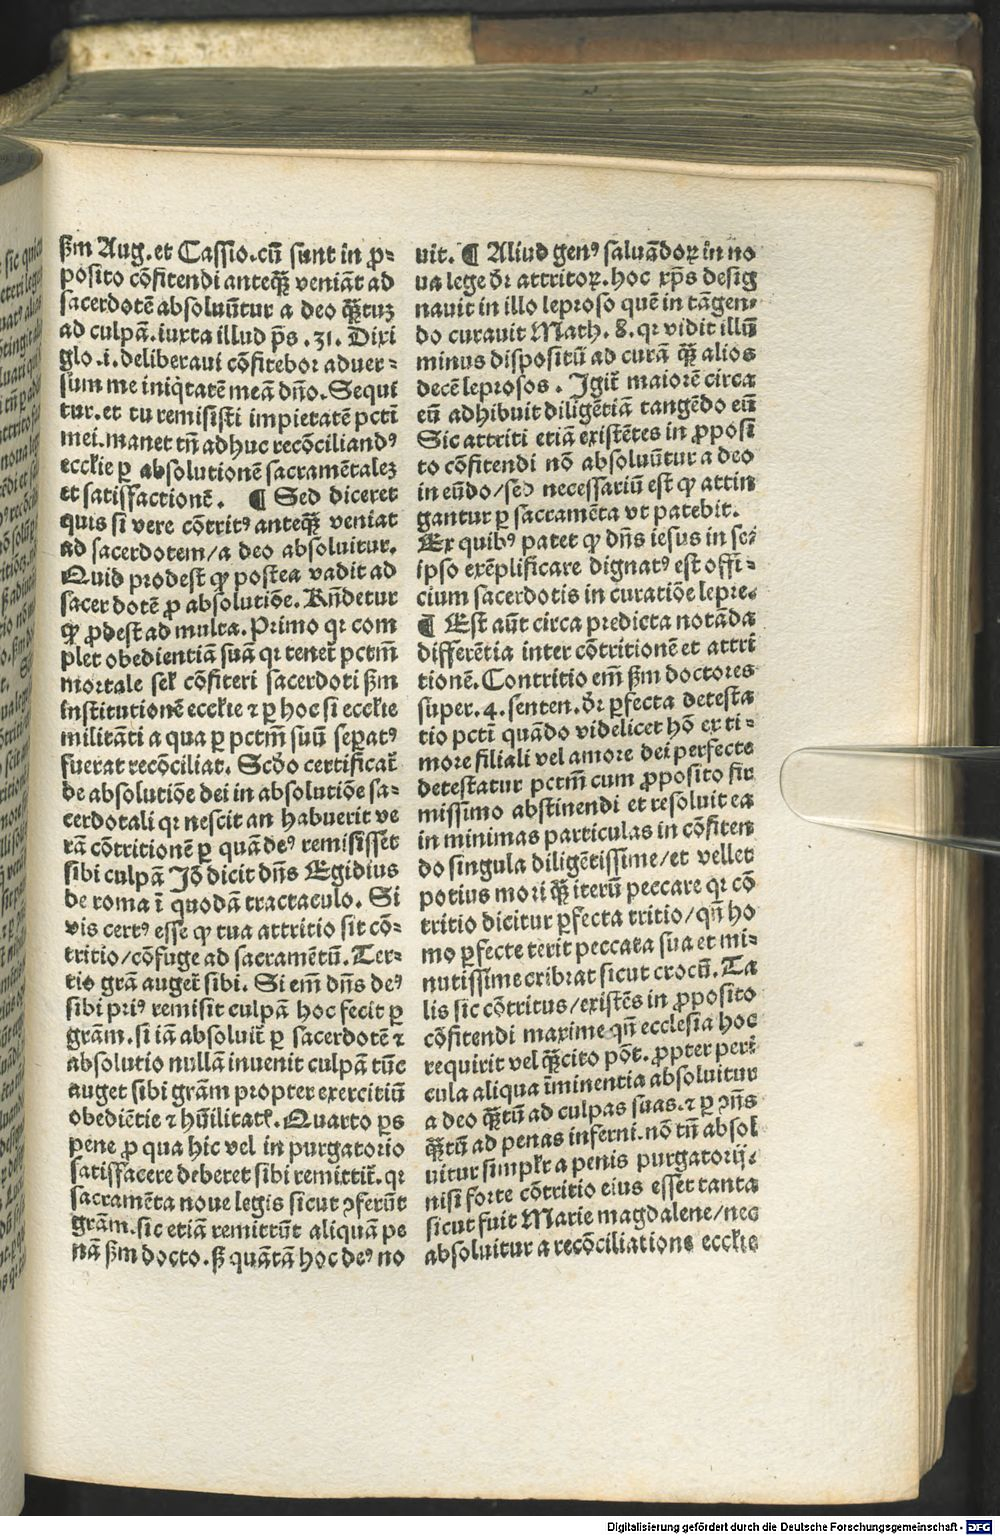 ẞm Aug. et Cassio. cū sunt in ꝓ-
posito cōfitendi anteq̄ꝫ veniāt ad
sacerdotē absoluūtur a deo q̄ꝫtuꝫ
ad culpā. iuxta illud p̄s .31. Dixi
glo .i. deliberaui cōfitebor aduer-
sum me iniq̇tatē meā dn̄o. Sequi
tur. et tu remisisti impietatē pcti̅
mei. manet tn̄ adhuc recōciliandꝰ
ecclie ꝑ absolutionē sacramētaleꝫ
et satisfactionē. ¶ Sed diceret
quis si vere cōtritꝰ anteq̄ꝫ veniat
ad sacerdotem/a deo absoluitur.
Quid prodest ꝙ postea vadit ad
sacerdotē ꝓ absolutiōe. Rn̄detur
ꝙ ꝓdest ad multa. Primo qꝛ com
plet obedientiā suā qꝛ tenet̄ pctm̄
mortale sel̵ cōfiteri sacerdoti ẞm
institutionē ecclie ⁊ ꝑ hoc si ecclie
militāti a qua ꝑ pctm̄ suū seꝑatꝰ
fuerat recōciliat. Scd̄o certificat̄
de absolutiōe dei in absolutiōe sa-
cerdotali qꝛ nescit an habuerit ve
rā cōtritionē ꝑ quā deꝰ remisisset
sibi culpā Jō dicit dn̄s Egidius
de roma ī quodā tractaculo. Si
vis certꝰ esse ꝙ tua attritio sit cō-
tritio/cōfuge ad sacramētū. Ter-
tio grā auget̄ sibi. Si em̄ dn̄s deꝰ
sibi priꝰ remisit culpā hoc fecit ꝑ
grām. si iā absoluit̄ ꝑ sacerdotē ⁊
absolutio nullā inuenit culpā tūc
auget sibi grām propter exercitiū
obediētie ⁊ hūilitatꝭ. Quarto ꝑs
pene ꝓ qua hic vel in purgatorio
satisfacere deberet sibi remittit̄. qꝛ
sacramēta noue legis sicut ꝯferūt
grām. sic etiā remittūt aliquā pe
nā ẞm docto. ẞ quātā hoc deꝰ no
uit. ¶ Aliud genꝰ saluādoꝝ in no
ua lege dr̄ attritoꝝ. hoc xp̄s desig
nauit in illo leproso quē in tāgen-
do curauit Math. 8. qꝛ vidit illū
minus dispositū ad curā q̄ꝫ alios
decē leprosos. Jgit̄ maiorē circa
eū adhibuit diligētiā tangēdo eū
Sic attriti etiā existētes in ꝓposi
to cōfitendi nō absoluūtur a deo
in eūdo/sed necessariū est ꝙ attin
gantur ꝑ sacramēta vt patebit.
Ex quibꝰ patet ꝙ dn̄s iesus in sei
ipso exēplificare dignatꝰ est offi-
cium sacerdotis in curatiōe lepre.
¶ Est aūt circa predicta notāda
differētia inter cōtritionē et attri
tionē. Contritio em̄ ẞm doctores
super .4. senten. dr̄ ꝑfecta detesta
tio pcti̅ quādo videlicet hō ex ti-
more filiali vel amore dei perfecte
detestatur pctm̄ cum ꝓposito fir
missimo abstinendi et resoluit ea
in minimas particulas in cōfiten
do singula diligētissime/et vellet
potius mori q̄ꝫ iterū peccare qꝛ cō
tritio dicitur ꝑfecta tritio/qn̄ ho
mo ꝑfecte terit peccata sua et mi-
nutissime cribrat sicut crocū. Ta
lis sic cōtritus/existēs in ꝓposito
cōfitendi maxime qn̄ ecclesia hoc
requirit vel q̄ꝫcito pōt. ꝓpter peri
cula aliqua īminentia absoluitur
a deo q̄ꝫtū ad culpas suas. ⁊ ꝑ ꝯn̄s
q̄ꝫtū ad penas inferni. nō tn̄ absol
uitur simplr̄ a penis purgatorij.
nisi forte cōtritio eius esset tanta
sicut fuit Marie magdalene/nec
absoluitur a recōciliatione ecclie
Digitalisierung gefördert durch die Deutsche Forschungsgemeinschaft - DFG